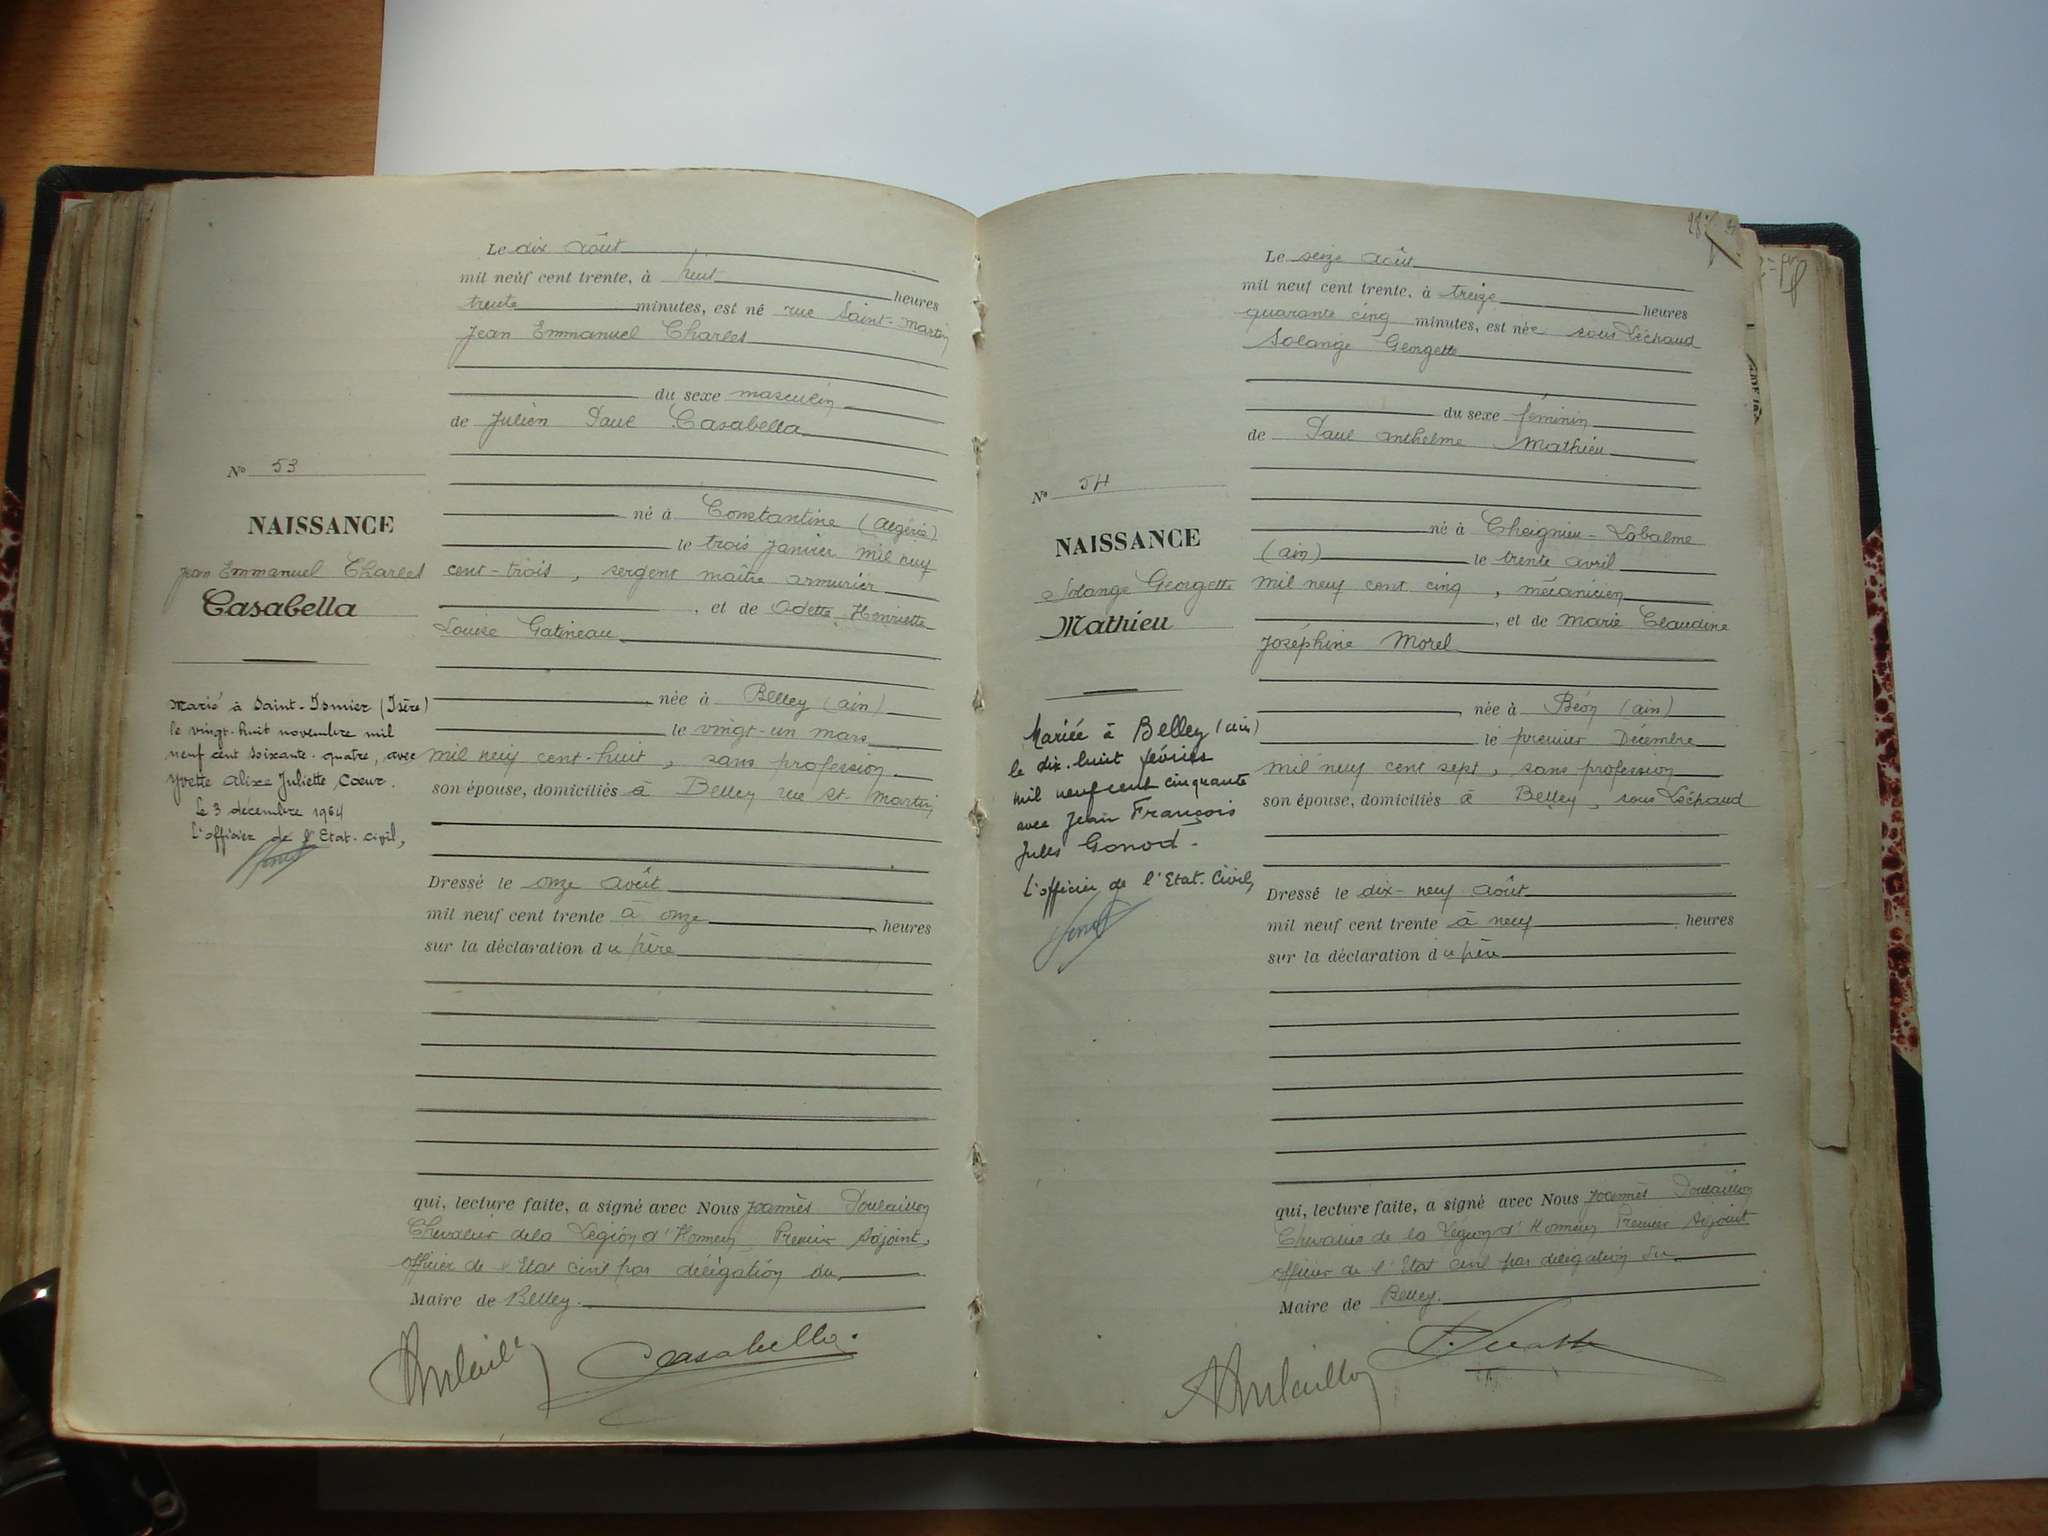 Le dix août
mil neuf cent trente, à huit heures
trente minutes, est né rue Saint-Martin
Jean Emmanuel Charles
du sexe masculin
de Julien Paul Casabella
né à Constantine (Algérie)
le trois Janvier mil neuf
cent-trois, sergent maître armurier
, et de Odette Henriette
Louise Gatineau
née à Belley (ain)
le vingt-un mars
mil neuf cent-huit, sans profession
son épouse, domiciliés à Belley rue St-Martin
Dressé le onze août
mil neuf cent trente à onze heures
sur la déclaration du père
qui, lecture faite, a signé avec Nous Joannès Poulaillon
Chevalier de la Légion d'Honneur, Premier Adjoint,
officier de l'Etat civil par délégation du
Maire de Belley.
Casabella
No 53
NAISSANCE
Jean Emmanuel Charles
Casabella
Marié à Saint-Ismier (Isère)
le vingt-huit novembre mil
neuf cent soixante-quatre, avec
Yvette Alixe Juliette Cœur.
Le 3 décembre 1964
L'officier de l'Etat-civil,
Le seize août
mil neuf cent trente, à treize heures
quarante cinq minutes, est née sous Léchaud
Solange Georgette
du sexe féminin
de Paul Anthelme Mathieu
né à Cheignieu-Labalme
(ain) le trente avril
mil neuf cent cinq, mécanicien
, et de Marie Claudine
Joséphine Morel
née à Béon (ain)
le premier Décembre
mil neuf cent sept, sans profession
son épouse, domiciliés à Belley, sous Léchaud
Dressé le dix-neuf août
mil neuf cent trente à neuf heures
sur la déclaration du père
qui, lecture faite, a signé avec Nous Joannès Poulaillon
Chevalier de la Légion d'Honneur, Premier Adjoint
officier de l'Etat civil par délégation du
Maire de Belley.
No 54
NAISSANCE
Solange Georgette
Mathieu
Mariée à Belley (ain)
le dix-huit février
mil neuf cent cinquante
avec Jean François
Jules Gonod.
L'officier de l'Etat-Civil,